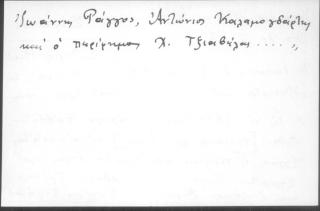 Ἰωάννης Ράγγος, Ἀντώνιος Καλαμογδάρτης
καί ὁ περίφημος Χ. Τζιαβέλας .... ,,